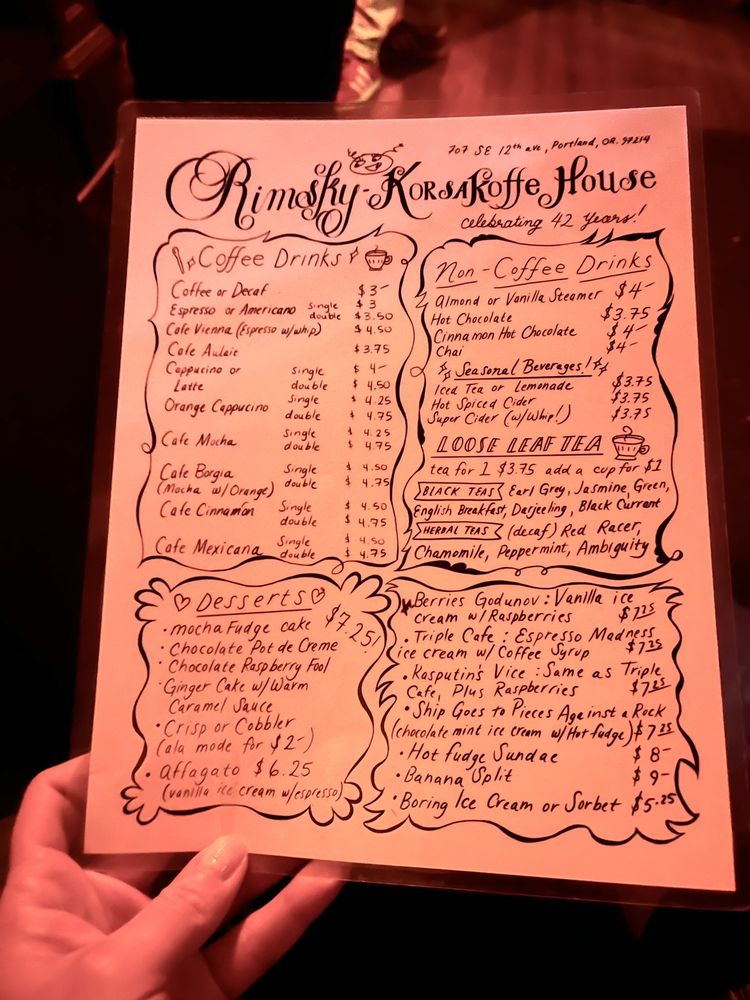 707 SE 12th ave, Portland, OR. 97214
Rimsky-Korsakoffe House
celebrating 42 years!
Coffee Drinks
Coffee or Decaf $3-
Espresso or Americano single $3
double $3.50
Cafe Vienna (Espresso w/whip) $4.50
Cafe Aulait $3.75
Cappucino or Single $4-
Latte double $4.50
Orange Cappucino Single $4.25
double $4.75
Cafe Mocha Single $4.25
double $4.75
Cafe Borgia Single $4.50
(Mocha w/Orange) double $4.75
Cafe Cinnamon Single $4.50
double $4.75
Cafe Mexicana Single $4.50
double $4.75
Non-Coffee Drinks
Almond or Vanilla Steamer $4-
Hot Chocolate $3.75
Cinnamon Hot Chocolate $4-
Chai $4-
Seasonal Beverages!
Iced Tea or Lemonade $3.75
Hot Spiced Cider $3.75
Super Cider (w/Whip!) $3.75
LOOSE LEAF TEA
tea for 1 $3.75 add a cup for $1
BLACK TEAS Earl Grey, Jasmine, Green,
English Breakfast, Darjeeling, Black Currant
HERBAL TEAS (decaf) Red Racer,
Chamomile, Peppermint, Ambiguity
Desserts $7.25!
• mocha Fudge cake
• Chocolate Pot de Creme
• Chocolate Raspberry Fool
• Ginger Cake w/Warm
Caramel Sauce
• Crisp or Cobbler
(ala mode for $2-)
• Affagato $6.25
(vanilla ice cream w/espresso)
• Berries Godunov: Vanilla ice
cream w/Raspberries $7.25
• Triple Cafe: Espresso Madness
ice cream w/ Coffee Syrup $7.25
• Rasputin's Vice: Same as Triple
Cafe, Plus Raspberries $7.25
• Ship Goes to Pieces Against a Rock
(chocolate mint ice cream w/Hot fudge) $7.25
• Hot fudge Sundae $8-
• Banana Split $9-
• Boring Ice Cream or Sorbet $5.25